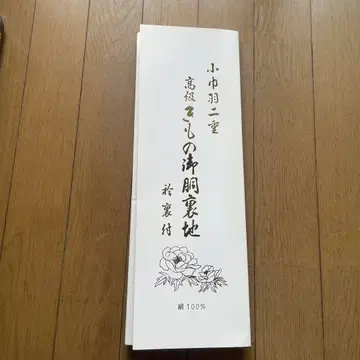 小巾羽二重
高級きもの御胴裏地
衿裏付
絹100%